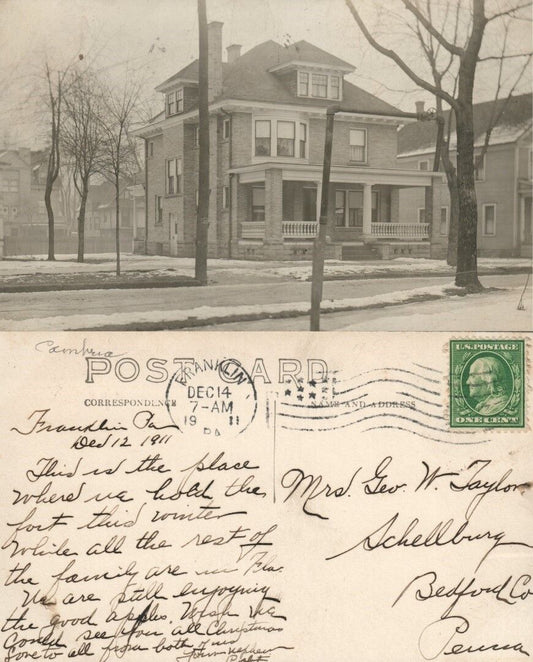 Cambria
POST CARD
CORRESPONDENCE
NAME AND ADDRESS
FRANKLIN
DEC 14
7-AM
19 11
PA.
U.S. POSTAGE
ONE CENT
Franklin Pa
Dec 12 1911
This is the place
where we hold the
fort this winter
while all the rest of
the family are in Fla.
We are still enjoying
the good apples. Wish we
could see you all Christmas
Love to all from both
Your nephew
Mrs. Geo. W. Taylor
Schellburg
Bedford Co
Penna